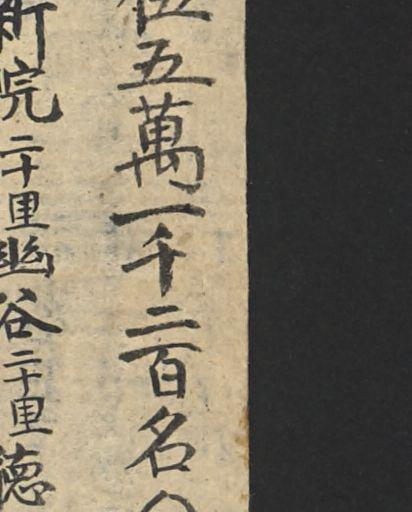 五萬一千二百名
院二十里幽谷二十里德